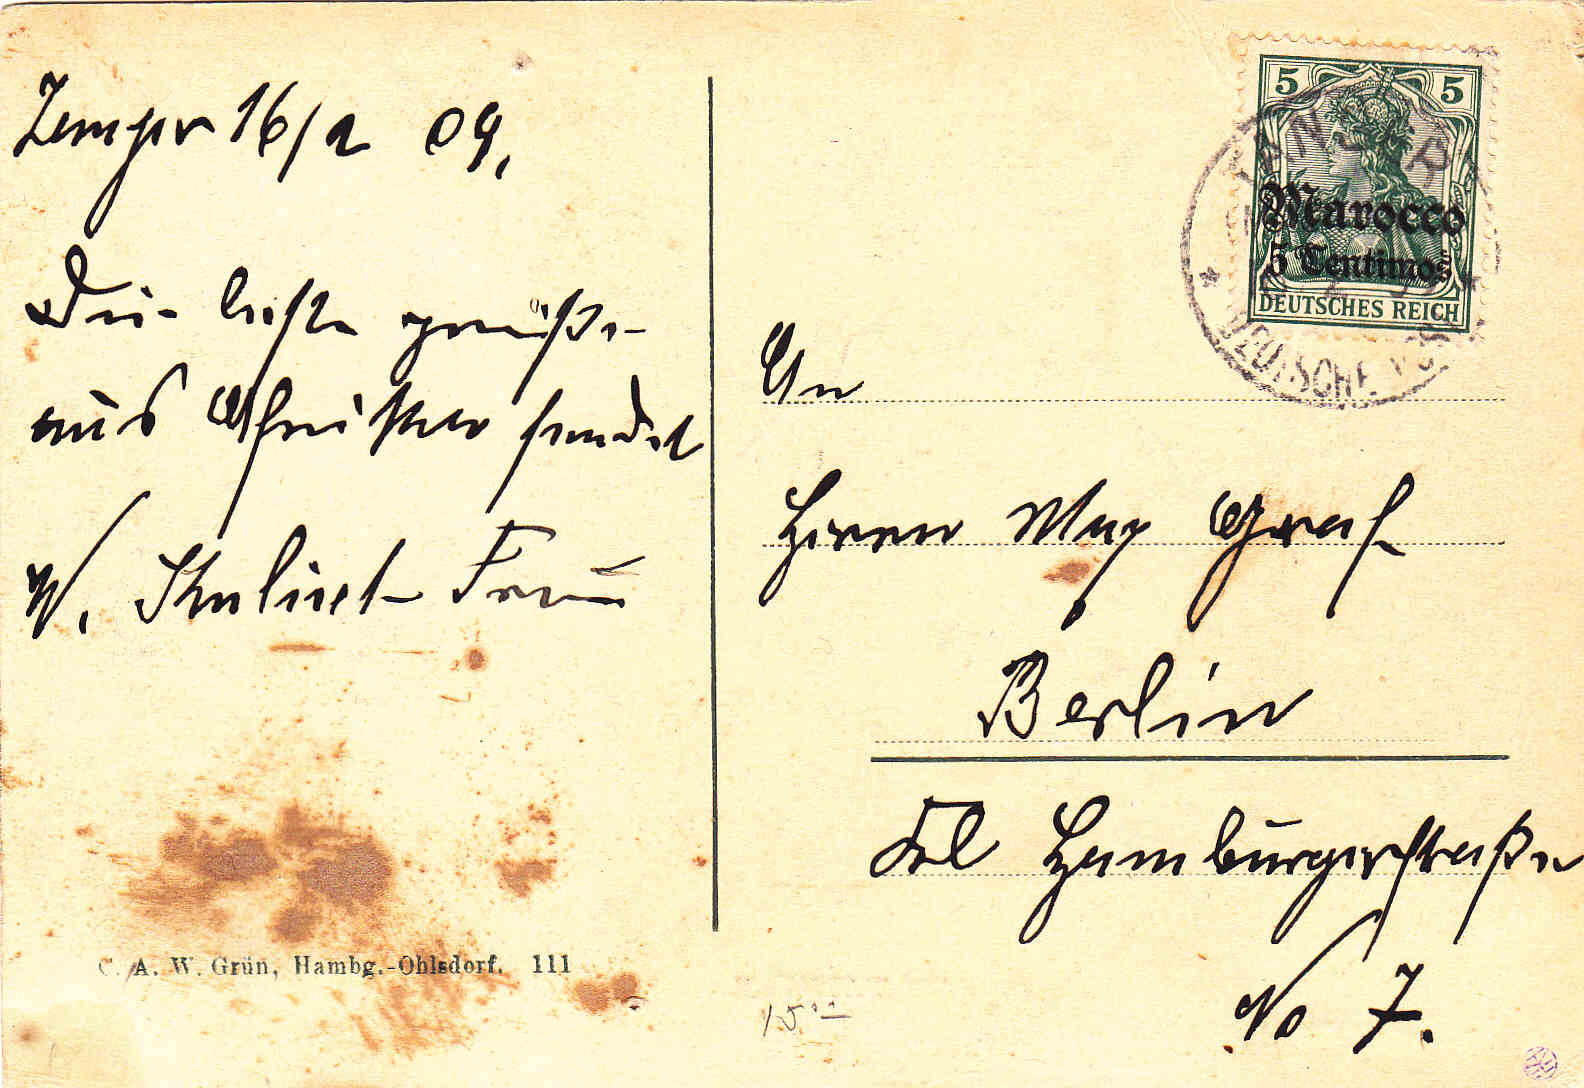 16/2 09.
Die beste grüße
aus sendet
W. Frau
5 5
Marocco
5 Centimos
DEUTSCHES REICH
TANGER
DEUTSCHE POST
An
Herrn Max Graf
Berlin
Kl Hamburgerstraße
No 7.
C. A. W. Grün, Hambg.-Ohlsdorf. 111